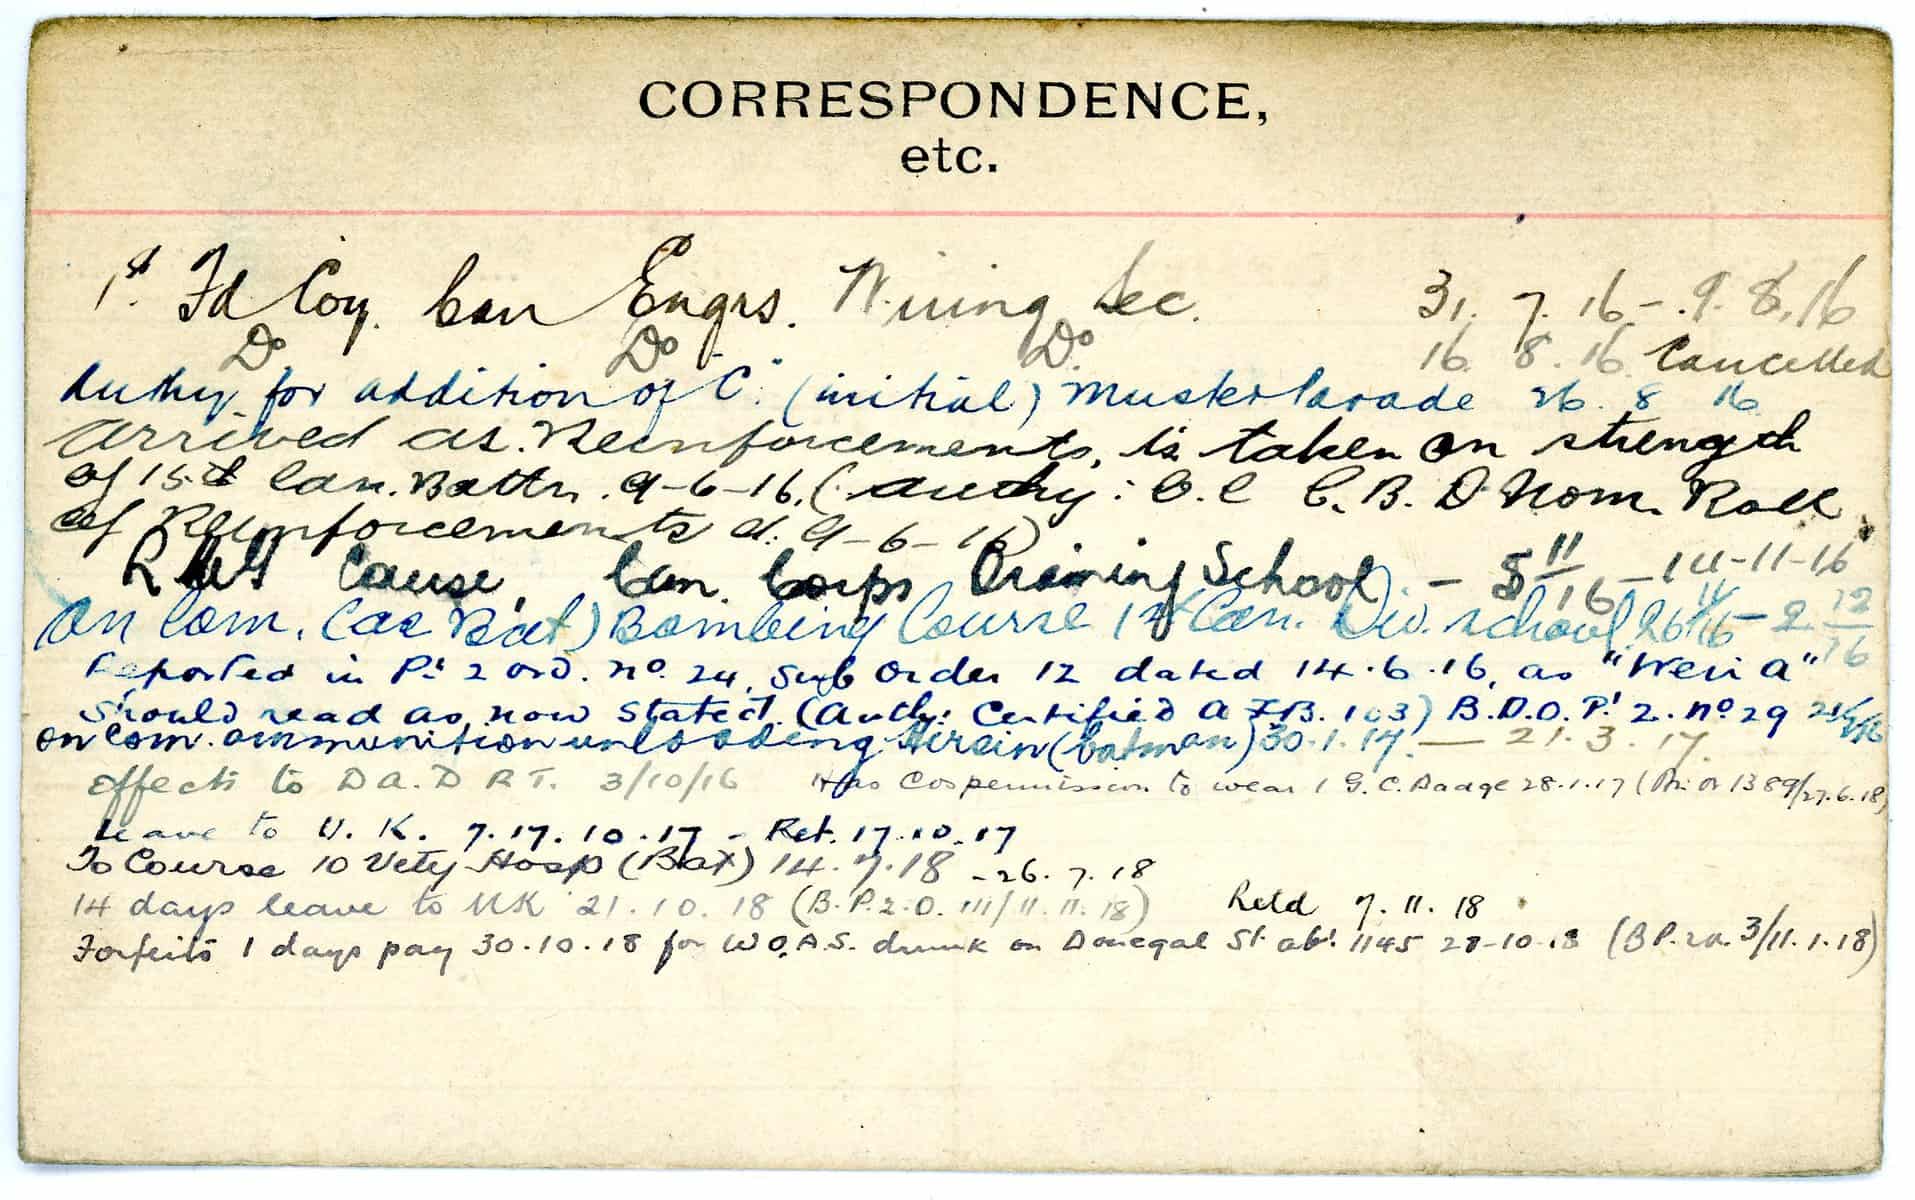 CORRESPONDENCE,
etc.
1st Fd Coy. Can Engrs. Wiring Sec. 31. 7. 16 - 9. 8. 16
Do Do Do. 16. 8. 16. Cancelled
Authy. for addition of "C." (initial) Muster Parade 26. 8 16
Arrived as Reinforcements, is taken on strength
of 15th Can. Battn. 9-6-16. (Authy: O.C C.B.D Nom. Roll
of Reinforcements d. 9-6-16)
Course, Can. Corps Training School - 5 11/16 - 14-11-16
On Com. (as Bat) Bombing Course 1st Can. Div. School 26/11/16 - 2 12/16
Reported in Pt 2 ord. no. 24, Sub Order 12 dated 14.6.16, as "Weir A"
Should read as now stated. (Auth: Certified A F B. 103) B.D.O. Pt 2. no 29
on Com. ammunition unloading (batman) 30.1.17. — 21.3.17.
Effects to D A. D R T. 3/10/16 Has permission to wear 1 G.C. Badge 28.1.17 ( 1389/27.6.18)
Leave to U. K. 7.17.10.17 - Ret. 17.10.17
To Course 10 Vety Hosp (Bat) 14.7.18 - 26.7.18
14 days leave to UK 21.10.18 (B.P.2.O. 111/11.11.18) Retd 7.11.18
Forfeits 1 days pay 30.10.18 for W.O.A.S. drunk on Donegal St. abt. 1145 28-10-18 (B P. 2 o. 3/11.1.18)